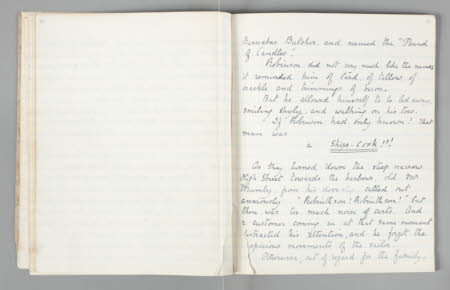 Barnabas, Butcher, and named the "Pound
of Candles".
Robinson did not very much like the name;
it reminded him of lard, of tallow, of
crackle and trimmings of bacon.
But he allowed himself to be led away,
smiling shyly, and walking on his toes.
If Robinson had only known! That
man was
a Ships-Cook!!!
As they turned down the steep narrow
High Street towards the harbour, old Mr.
Mumby, from his doorstep, called out
anxiously "Robinson! Robinson!" but
there was too much noise of carts. And
a customer coming in at that same moment
distracted his attention, and he forgot the
suspicious movements of the sailor.
Otherwise, out of regard for the family,